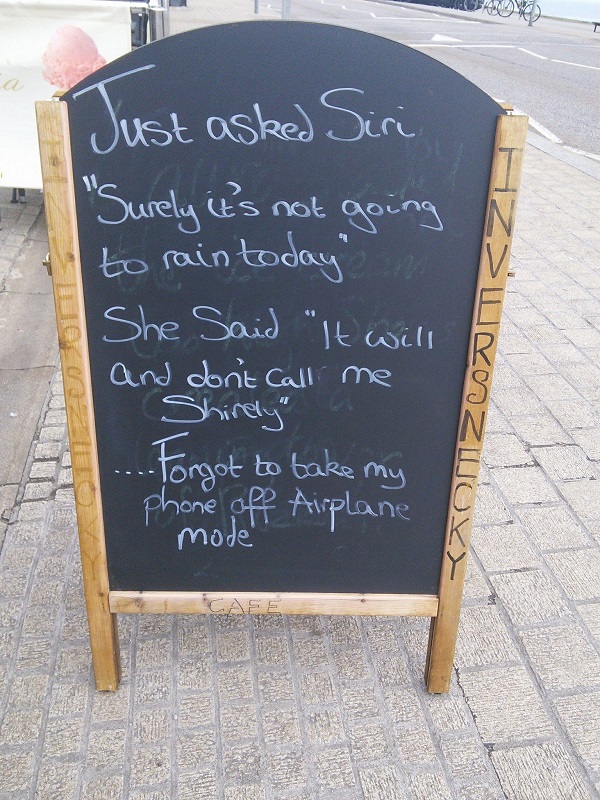 Just asked Siri
"Surely it's not going
to rain today"
She Said "It will
and don't call me
Shirely"
....Forgot to take my
phone off Airplane
mode
INVERSNECKY
INVERSNECKY
CAFE